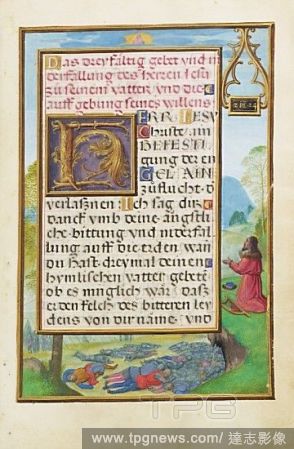 Das dreyfaltig gebet und ni
derfallung des herren Jesu
zu seinem vatter und die
auff gebung seines willens
HERR IESV
Christe im
BEFESTI
gung der en
GEL AIN
zuflucht. d
verlasznen: Ich sag dir
danck umb deine angstli
che bittung und niderfal
lung auff die erden wan
du hast dreymal deinen
hymlischen vatter gebete
ob es muglich war das
er den kelch des bitteren ley
dens von dir näme, und
TPG
www.tpgnews.com / 達志影像